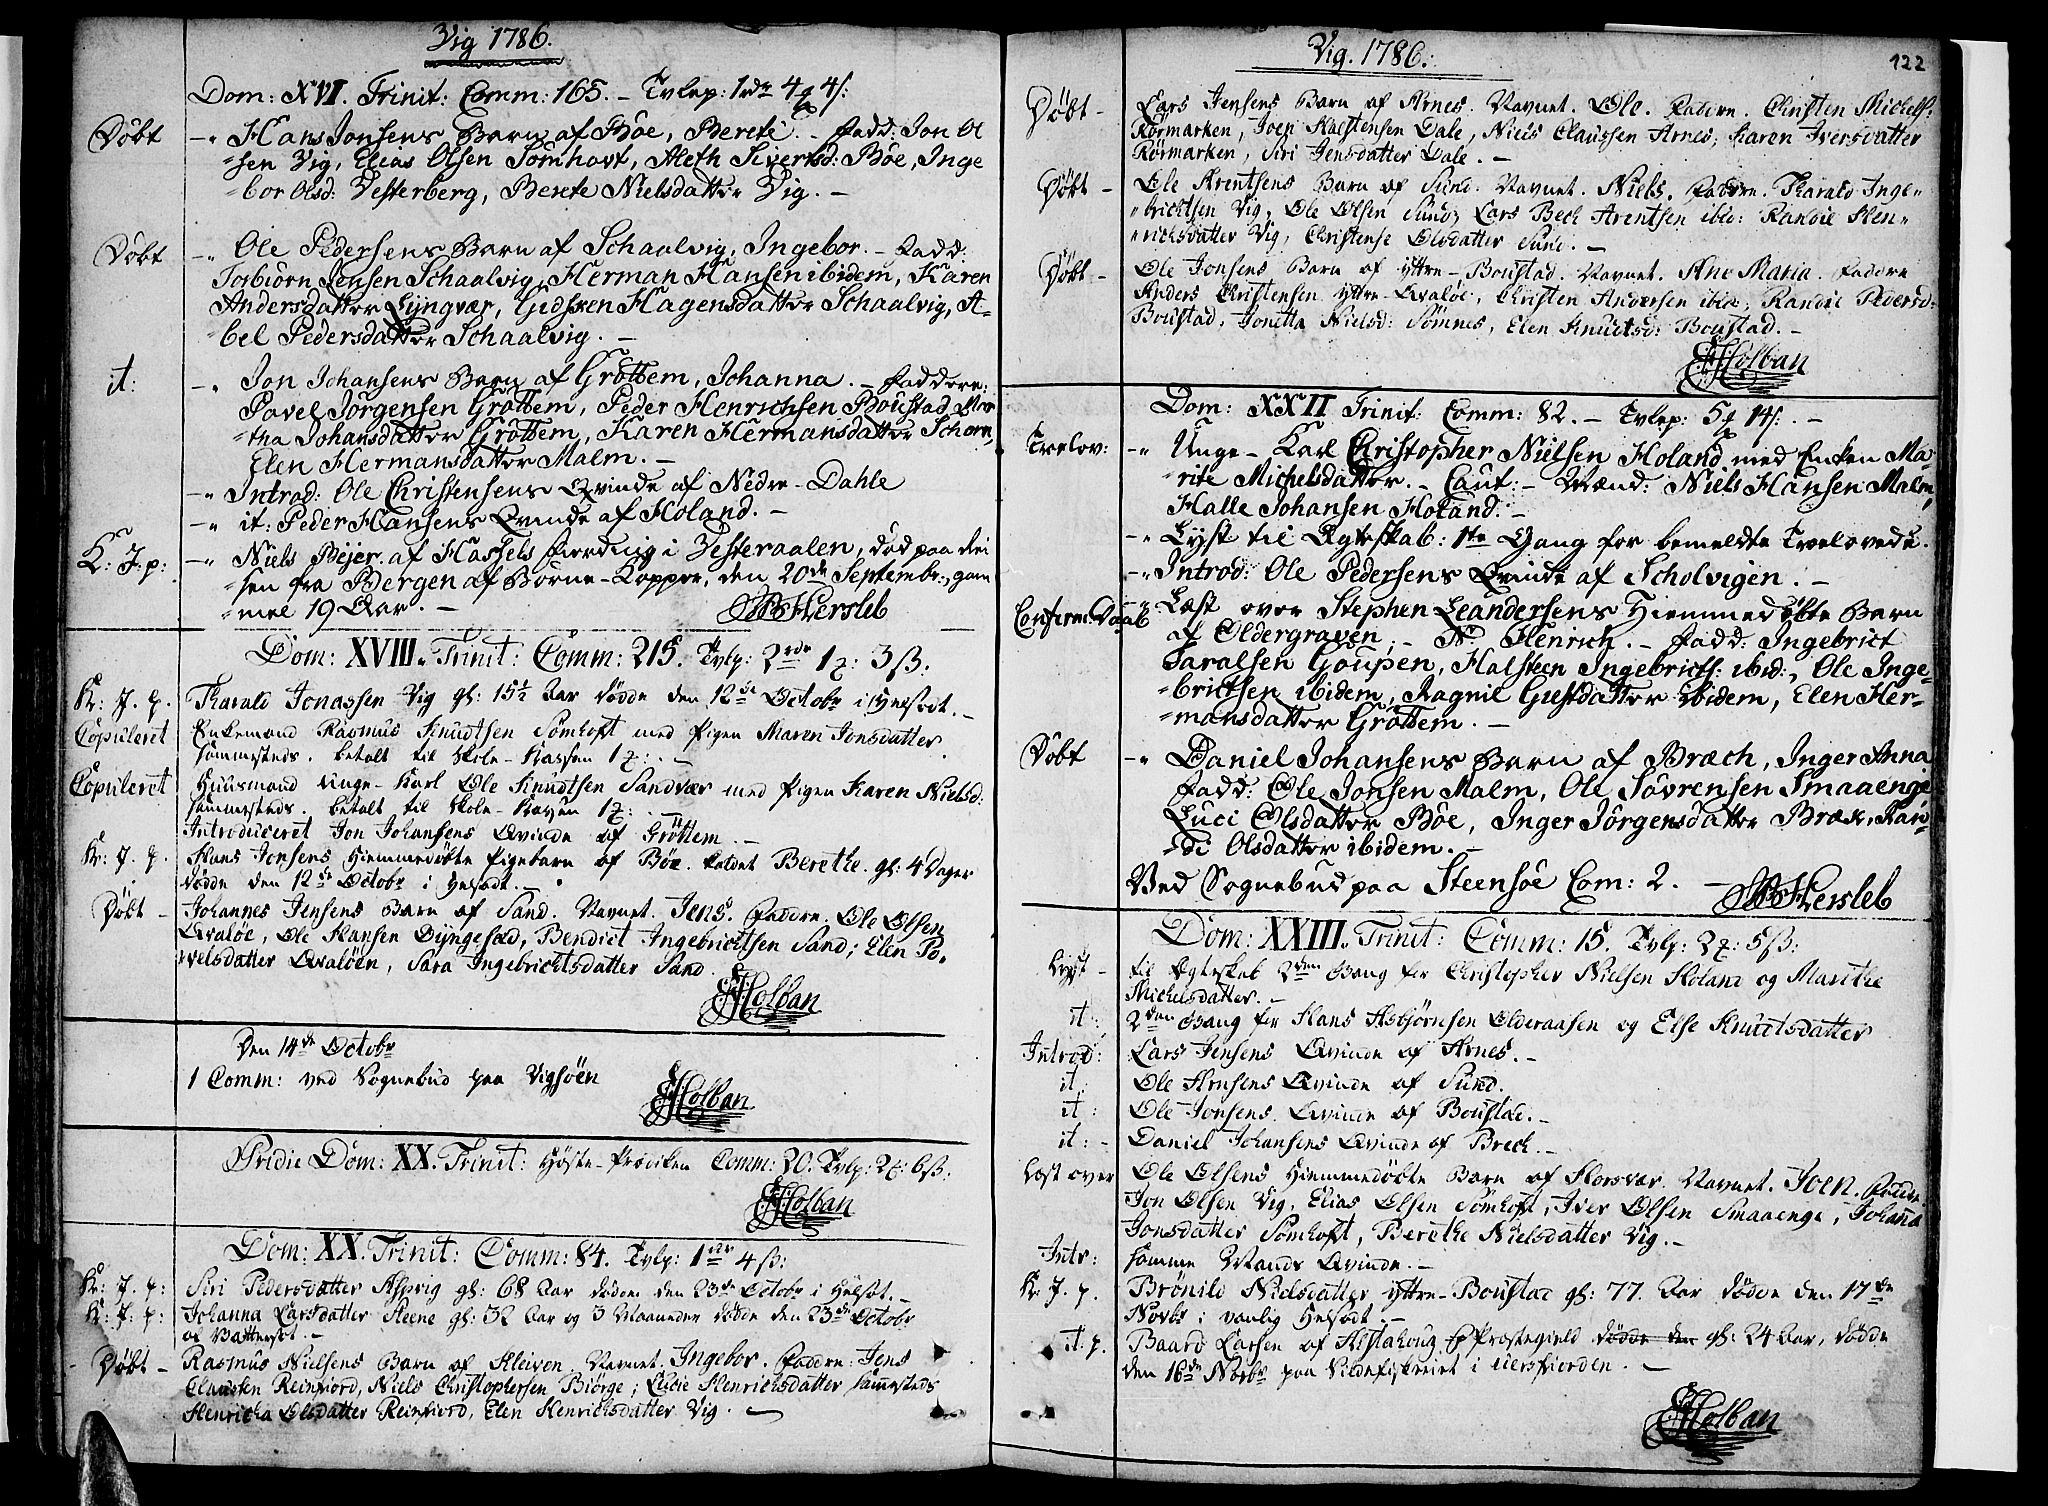 Vig 1786.
Dom: XVI. Trinit: Comm: 165. – Tvlep: 1 rdr 4 4/:
Döbt -„ Hans Jonsens Barn af Böe, Berete. – Fadd: Jon Ol
sen Vig, Elias Olsen Sömhovt, Aleth Sivertsd: Böe, Inge
bor Olsd: Vesterberg, Berete Nielsdatter Vig. –
Döbt -„ Ole Pedersens Barn af Schaalvig, Ingebor. – Fadd:
Torbiörn Jensen Schaalvig, Herman Hansen ibidem, Karen
Andersdatter Lyngvær, Hagensdatter Schaalvig, A-
bel Pedersdatter Schaalvig. –
it: -„ Jon Johansens Barn af Gröttem, Johanna. – Faddere:
Pavel Jörgensen Gröttem, Peder Henrichsen Boustad, Mar
tha Johansdatter Gröttem, Karen Hermansdatter Schorn,
Elen Hermansdatter Malm. –
-„ Introd: Ole Christensens Qvinde af Nedre-Dahle
-„ it: Peder Hansens Qvinde af Holand. –
K: J: p: -„ Niels Bejer af Hassels Fierding i Vesteraalen, død paa Rei
sen fra Bergen af Börne-Kopper, den 20de Septembr:, gam
mel 19 Aar. – Hersleb
Dom: XVIII. Trinit: Comm: 215. Tvlp: 2 rdr 1 : 3 ß.
K: J. p. Tharald Jonassen Vig gl: 15½ Aar Dödde den 12te Octobr i Helsot. –
Copuleret Enkemand Rasmus Knudtsen Sömhoft med Pigen Maren Jonsdatter
sammesteds. betalt til Skole-Kassen 1 : –
Copuleret Huusmand Unge-Karl Ole Knudtsen Sandvær med Pigen Karen Nielsd:
sammesteds. betalt til Skole-Kassen 1 :
Introduceret Jon Johansens Qvinde af Gröttem. –
K: J. p. Hans Jonsens Hiemmedöbte Pigebarn af Böe. kaldet Berethe. gl: 4 Dager
dödde den 12te Octobr i Helsot. –
Döbt – Johannes Jensens Barn af Sand. Navnet. Jens. Faddre. Ole Olsen
Qvalöe, Ole Hansen Dyngesæd, Bendict Ingebrichtsen Sand; Elen Po-
velsdatter Qvalöen, Sara Ingebrichtsdatter Sand.
Holban
Den 14de Octobr
1 Comm: ved Sognebud paa Vigsöen
Holban
Pridie Dom: XX. Trinit: Höste-Præciken Comm: 20. Tvlp: 2 : 6 ß:
Holban
Dom: XX. Trinit: Comm: 84. Tvlp: 1 rdr 4 ß:
K: J. p: Siri Pedersdatter gl: 68 Aar dödde den 23de Octobr i Helsot. –
K: J: p: Johanna Larsdatter Steene gl: 32 Aar og 3 Maaneder dödde den 23de Octobr
af Vattersot. –
– Döbt – Rasmus Nielsens Barn af Kleiven. Navnet. Ingebor. Faddre: Jens
Claussen Reinfiord, Niels Christophersen Biörge; Lucie Henrichsdatter sammesteds
Henricha Olsdatter Reinfiord, Elen Henrichsdatter Vig. –
Vig. 1786. 122
Döbt – Lars Jensens Barn af Arnes. Navnet. Ole. Faddre. Christen Michels:
Rörmarken, Joen Halstensen Dale, Niels Claussen Arnes; Karen Iversdatter
Rörmarken, Siri Jensdatter Dale. –
Döbt – Ole Arentsens Barn af Sund. Navnet. Niels. Faddre. Tharald Inge-
brichtsen Vig, Ole Olsen Sund, Lars Bech Arentsen ibid: Randie Hen-
richsdatter Vig, Christense Olsdatter Sund. –
Döbt – Ole Jonsens Barn af Yttre-Boustad. Navnet. Ane Maria. Faddre
Anders Christensen Yttre-Qvalöe, Christen Andersen ibid:, Randie Pedersd:
Boustad, Jonetta Nielsd: Sömnes, Elen Knudtsd: Boustad. –
Holban
Dom: XXII Trinit: Comm: 82. – Tvlep: 5 14/: –
Trolov: -„ Unge-Karl Christopher Nielsen Holand med Enken Ma-
rite Michelsdatter. – Caut: – Mænd: Niels Hansen Malm,
Halle Johansen Holand. –
-„ Lyst til Ægteskab: 1te Gang for bemeldte Trolovede.
-„ Introd: Ole Pedersens Qvinde af Scholvigen. –
Confirm: Daab -„ Læst over Stephen Leandersens Hiemmedöbte Barn
af Oldergraven, – N: Henrich. – Fadd: Ingebrict
Taralsen Goupen, Halsteen Ingebricts: ibid:, Ole Inge-
brictsen ibidem, Ragnil Gustdatter ibidem, Elen Her-
mansdatter Gröttem. –
Döbt -„ Daniel Johansens Barn af Bræch, Inger Anna
Fadd: Ole Jonsen Malm, Ole Sövrensen Smaaenge
Luci Olsdatter Böe, Inger Jörgensdatter Bræk, Ran-
di Olsdatter ibidem. –
Ved Sognebud paa Steensöe Com: 2. – Hersleb
Dom: XXIII. Trinit: Comm: 15. Tvlp: 2 : 5 ß:
Lyst – til Ægteskab 2den Gang for Christopher Nielsen Holand og Marithe
Michelsdatter. –
it: 2den Gang for Hans Asbjörnsen Olderaasen og Else Knudtsdatter
Introd: Lars Jensens Qvinde af Arnes. –
it: Ole Arnsens Qvinde af Sund.
it: Ole Jonsens Qvinde af Boustad. –
it: – Daniel Johansens Qvinde af Brech. –
Læst over Ole Olsens Hiemmedöbte Barn af Horsvær. Navnet. Joen. Faddre
Jon Olsen Vig, Elias Olsen Sömhoft, Iver Olsen Smaaenge, Johana
Jonsdatter Sömhoft, Berethe Nielsdatter Vig. –
Intr: samme Mands Qvinde. –
K: J. p. Brönild Nielsdatter Yttre-Boustad gl: 77. Aar dödde den 17de
Novbr i vanlig Helsodt. –
it. p. Baard Larsen af Alstahoug Præstegield dödde den gl: 24 Aar, dödde
den 16de Novbr paa Sildefiskeriet i fiorden. –
Holban